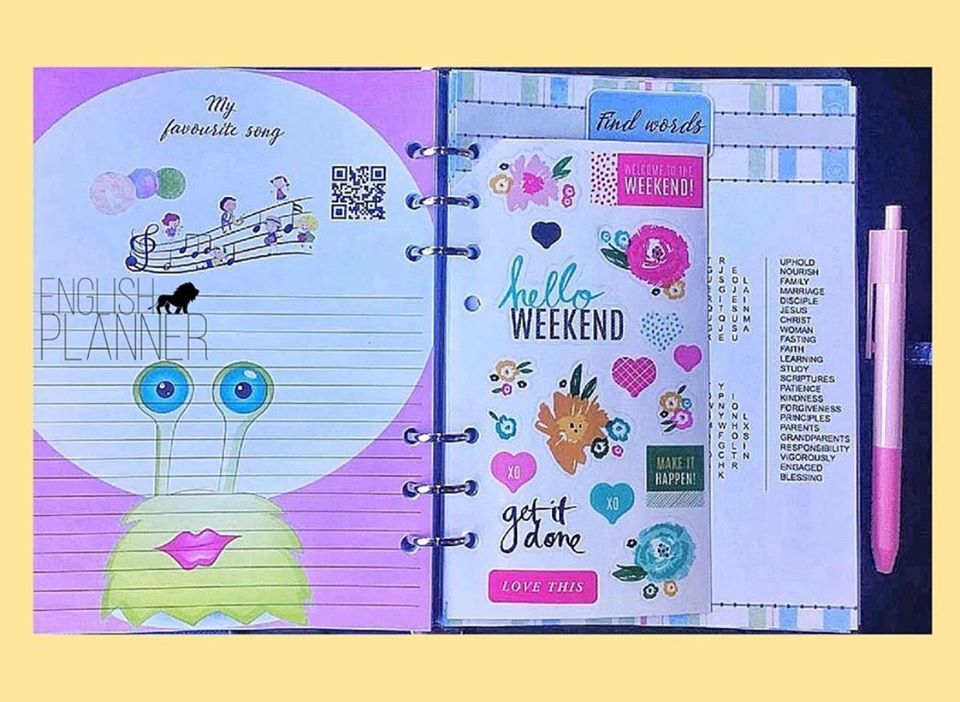 My
favourite song
ENGLISH
PLANNER
Find words
WELCOME TO THE
WEEKEND!
hello
WEEKEND
XO
MAKE IT
HAPPEN!
XO
get it
done
LOVE THIS
UPHOLD
NOURISH
FAMILY
MARRIAGE
DISCIPLE
JESUS
CHRIST
WOMAN
FASTING
FAITH
LEARNING
STUDY
SCRIPTURES
PATIENCE
KINDNESS
FORGIVENESS
PRINCIPLES
PARENTS
GRANDPARENTS
RESPONSIBILITY
VIGOROUSLY
ENGAGED
BLESSING